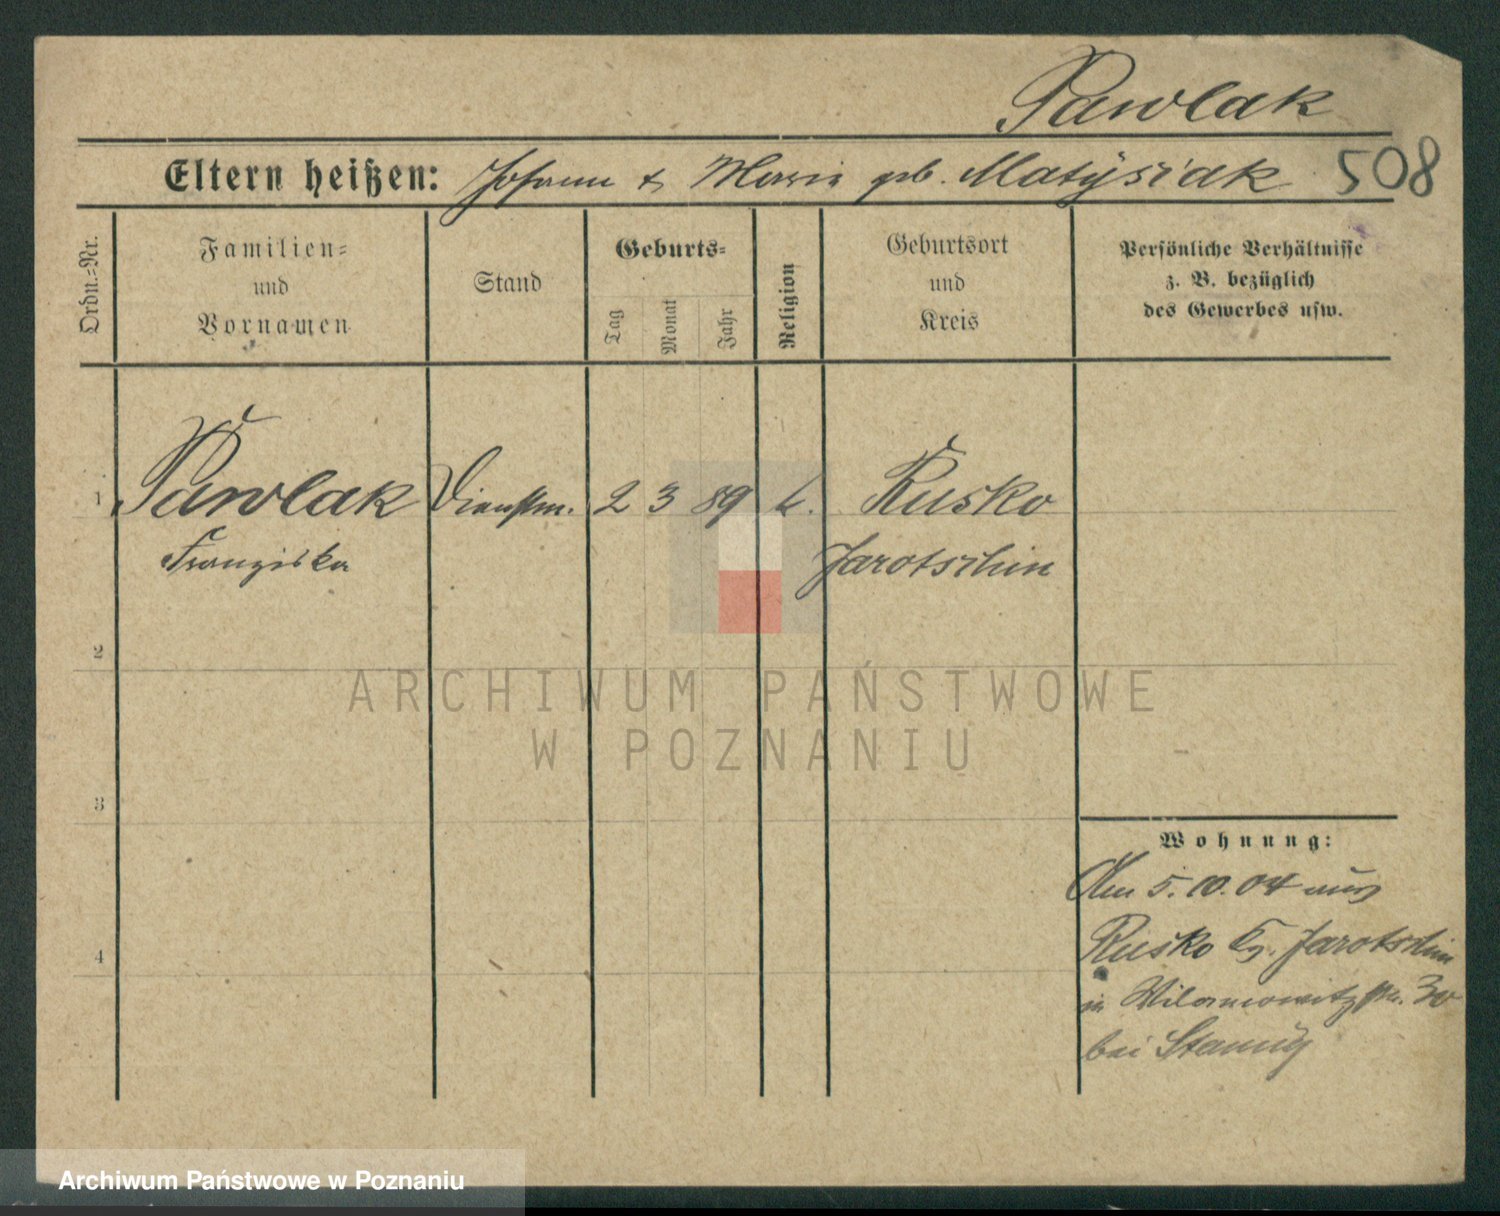 Pawlak
Eltern heißen: Johann & Maria geb. Matysiak 508
Ordn.=Nr.
Familien=
und
Vornamen
Stand
Geburts=
Tag
Monat
Jahr
Religion
Geburtsort
und
Kreis
Persönliche Verhältnisse
z. B. bezüglich
des Gewerbes usw.
1 Pawlak Dienstm. 2 3 89 k. Rusko
Franziska Jarotschin
2
ARCHIWUM PAŃSTWOWE
W POZNANIU
3
Wohnung:
Am 5.10.04 aus
Rusko Kr. Jarotschin
4
in Wilamowitzstr. 30
bei
Archiwum Państwowe w Poznaniu